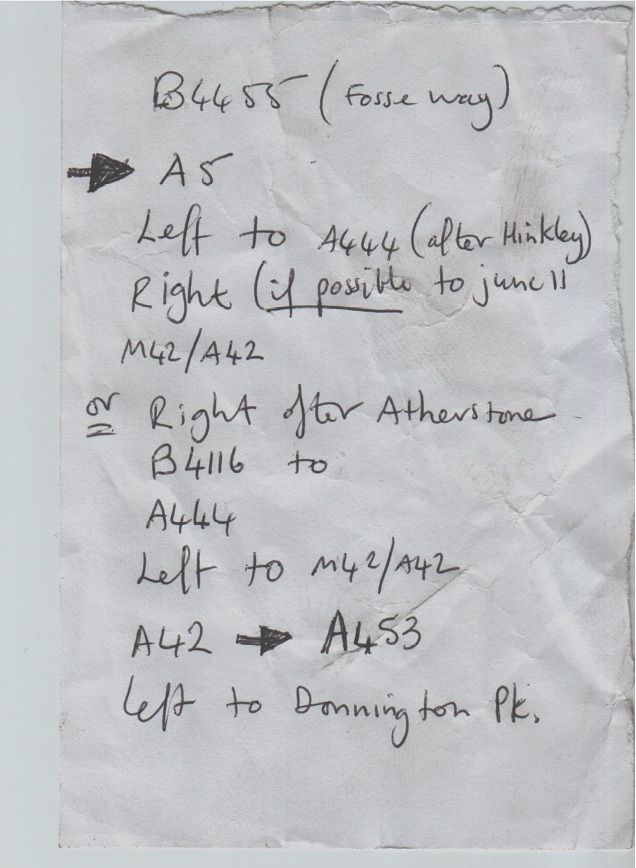 B4455 (Fosse way)
→ A5
Left to A444 (after Hinkley)
Right (if possible to junc 11
M42/A42
or Right after Atherstone
B4116 to
A444
Left to M42/A42
A42 → A453
left to Donnington Pk.